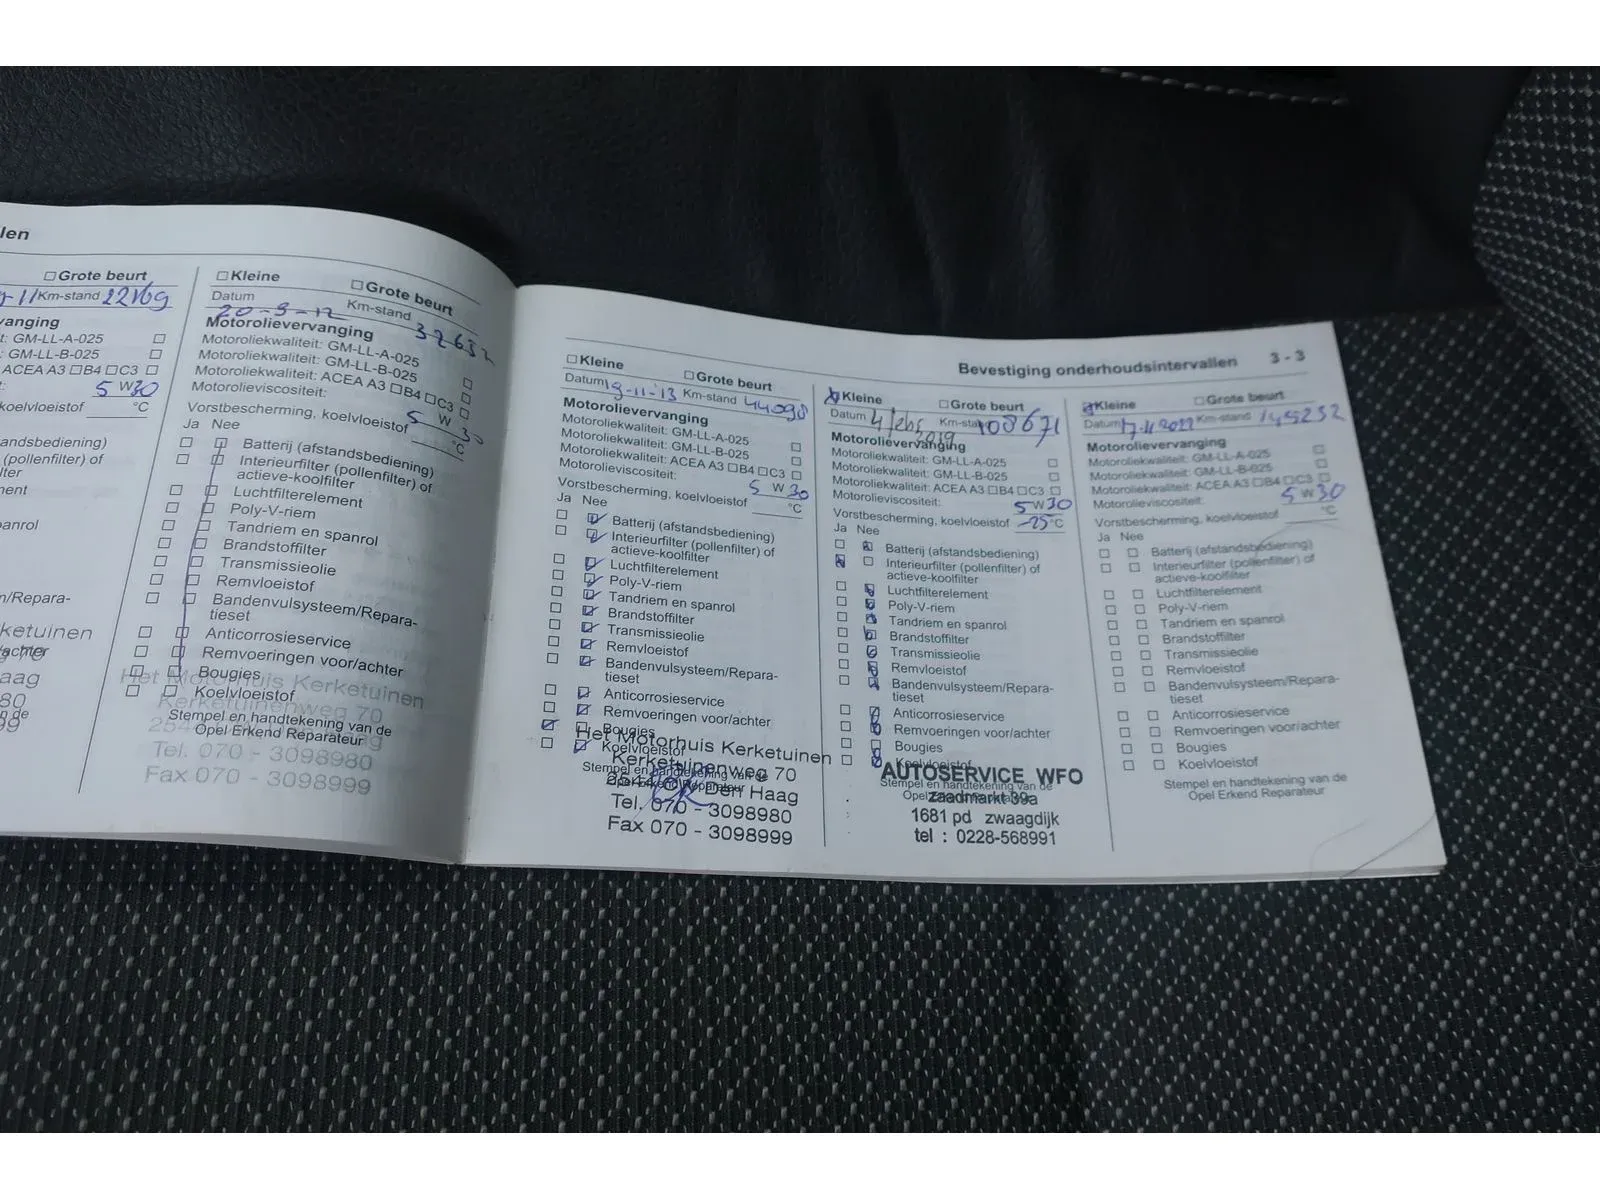 len
□Grote beurt
Km-stand 22169
vanging
t: GM-LL-A-025 □
: GM-LL-B-025 □
ACEA A3 □B4 □C3 □
5 W30
koelvloeistof °C
andsbediening)
(pollenfilter) of
lter
ment
panrol
m/Repara-
ketuinen
/achter
aag
80
99
□Kleine □Grote beurt
Datum 20-9-12 Km-stand 37652
Motorolievervanging
Motoroliekwaliteit: GM-LL-A-025 □
Motoroliekwaliteit: GM-LL-B-025 □
Motoroliekwaliteit: ACEA A3 □B4 □C3 □
Motorolieviscositeit: 5 W 30
Vorstbescherming, koelvloeistof °C
Ja Nee
□ □ Batterij (afstandsbediening)
□ □ Interieurfilter (pollenfilter) of
actieve-koolfilter
□ □ Luchtfilterelement
□ □ Poly-V-riem
□ □ Tandriem en spanrol
□ □ Brandstoffilter
□ □ Transmissieolie
□ □ Remvloeistof
□ □ Bandenvulsysteem/Repara-
tieset
□ □ Anticorrosieservice
□ □ Remvoeringen voor/achter
□ □ Bougies
□ □ Koelvloeistof
Stempel en handtekening van de
Opel Erkend Reparateur
Het Motorhuis Kerketuinen
Kerketuinenweg 70
Tel. 070 - 3098980
Fax 070 - 3098999
Bevestiging onderhoudsintervallen 3 - 3
□Kleine □Grote beurt
Datum 19-11-'13 Km-stand 44098
Motorolievervanging
Motoroliekwaliteit: GM-LL-A-025 □
Motoroliekwaliteit: GM-LL-B-025 □
Motoroliekwaliteit: ACEA A3 □B4 □C3 □
Motorolieviscositeit: 5 W 30
Vorstbescherming, koelvloeistof °C
Ja Nee
□ ☑ Batterij (afstandsbediening)
□ ☑ Interieurfilter (pollenfilter) of
actieve-koolfilter
□ ☑ Luchtfilterelement
□ ☑ Poly-V-riem
□ ☑ Tandriem en spanrol
□ ☑ Brandstoffilter
□ ☑ Transmissieolie
□ ☑ Remvloeistof
□ ☑ Bandenvulsysteem/Repara-
tieset
□ ☑ Anticorrosieservice
□ ☑ Remvoeringen voor/achter
☑ □ Bougies
□ ☑ Koelvloeistof
Stempel en handtekening van de
Opel Erkend Reparateur
Het Motorhuis Kerketuinen
Kerketuinenweg 70
Den Haag
Tel. 070 - 3098980
Fax 070 - 3098999
☒Kleine □Grote beurt
Datum 4 febr 2019 Km-stand 108671
Motorolievervanging
Motoroliekwaliteit: GM-LL-A-025 □
Motoroliekwaliteit: GM-LL-B-025 □
Motoroliekwaliteit: ACEA A3 □B4 □C3 □
Motorolieviscositeit: 5 W 30
Vorstbescherming, koelvloeistof -25 °C
Ja Nee
□ ☒ Batterij (afstandsbediening)
☒ □ Interieurfilter (pollenfilter) of
actieve-koolfilter
□ ☒ Luchtfilterelement
□ ☒ Poly-V-riem
□ ☒ Tandriem en spanrol
□ ☒ Brandstoffilter
□ ☒ Transmissieolie
□ ☒ Remvloeistof
□ ☒ Bandenvulsysteem/Repara-
tieset
□ ☒ Anticorrosieservice
□ ☒ Remvoeringen voor/achter
□ □ Bougies
□ ☒ Koelvloeistof
AUTOSERVICE WFO
Stempel en handtekening van de
zaadmarkt 39a
1681 pd zwaagdijk
tel : 0228-568991
☒Kleine □Grote beurt
Datum 17-11-2022 Km-stand 145232
Motorolievervanging
Motoroliekwaliteit: GM-LL-A-025 □
Motoroliekwaliteit: GM-LL-B-025 □
Motoroliekwaliteit: ACEA A3 □B4 □C3 □
Motorolieviscositeit: 5 W 30
Vorstbescherming, koelvloeistof °C
Ja Nee
□ □ Batterij (afstandsbediening)
□ □ Interieurfilter (pollenfilter) of
actieve-koolfilter
□ □ Luchtfilterelement
□ □ Poly-V-riem
□ □ Tandriem en spanrol
□ □ Brandstoffilter
□ □ Transmissieolie
□ □ Remvloeistof
□ □ Bandenvulsysteem/Repara-
tieset
□ □ Anticorrosieservice
□ □ Remvoeringen voor/achter
□ □ Bougies
□ □ Koelvloeistof
Stempel en handtekening van de
Opel Erkend Reparateur